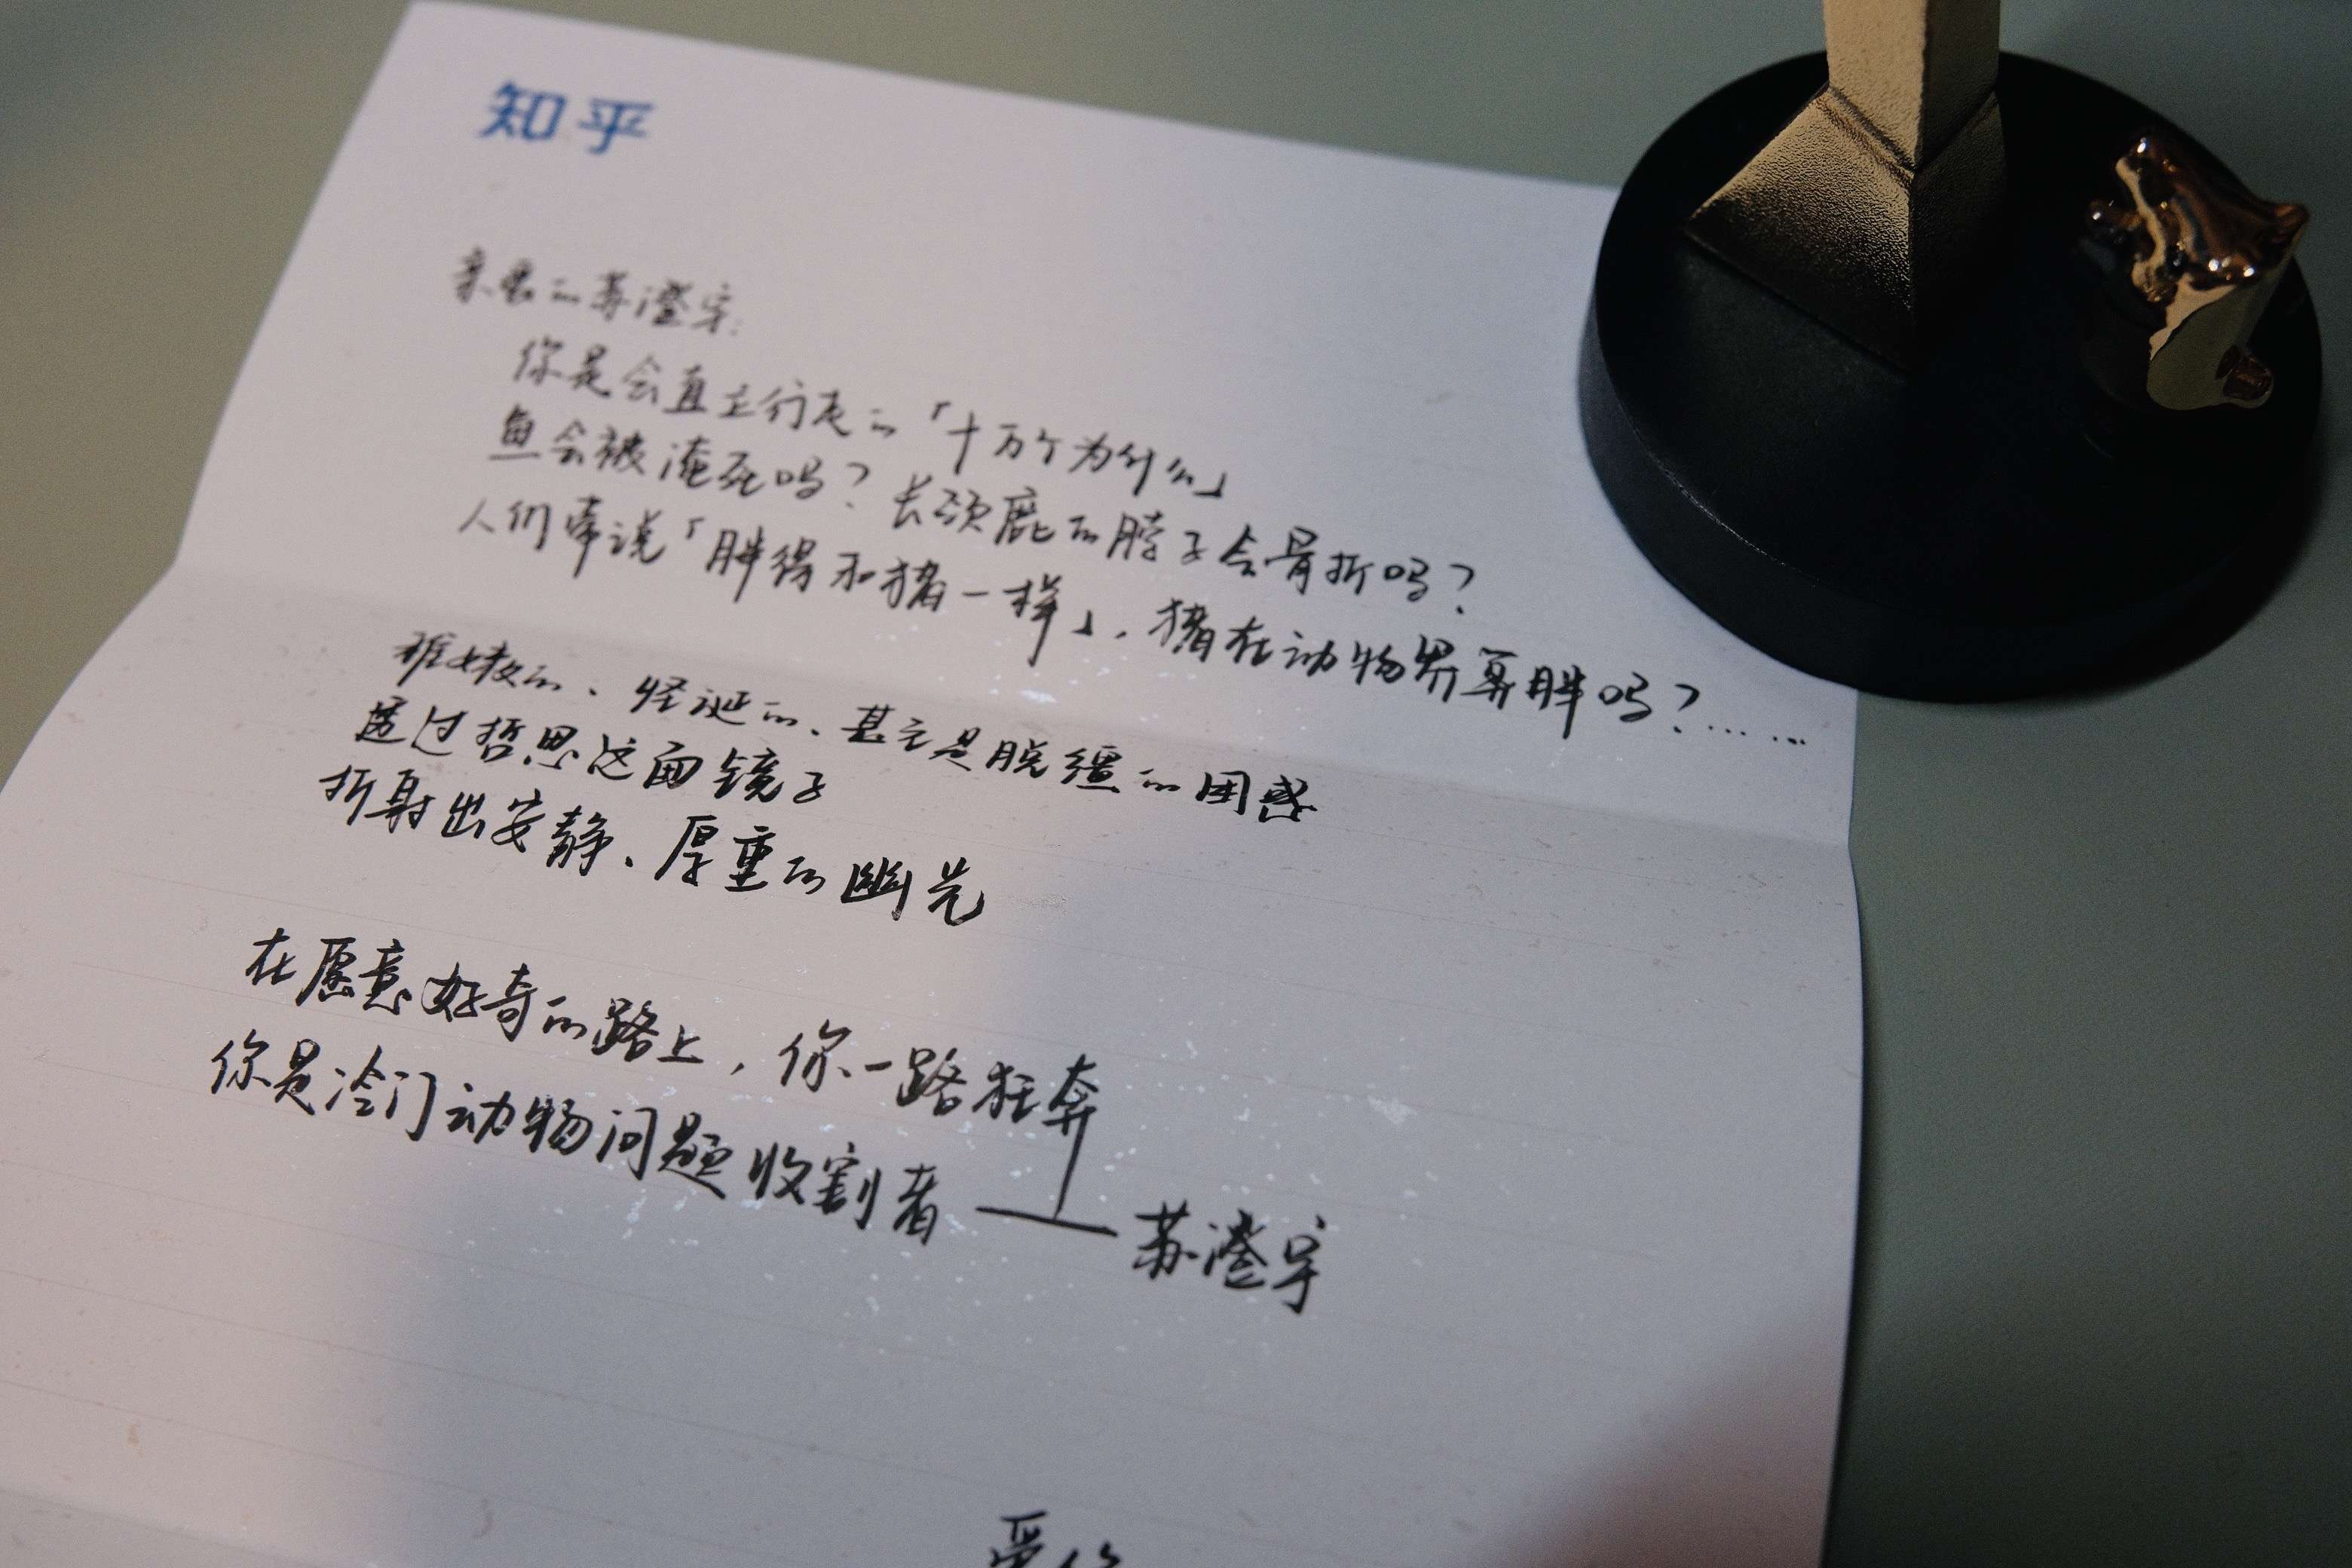 知乎
亲爱的苏澄宇:
你是会直立行走的「十万个为什么」
鱼会被淹死吗？长颈鹿的脖子会骨折吗？
人们常说「胖得和猪一样」，猪在动物界算胖吗？……
稚嫩的、怪诞的、甚至是脱缰的困惑
透过哲思这面镜子
折射出安静、厚重的幽光
在愿意好奇的路上，你一路狂奔
你是冷门动物问题收割者——苏澄宇
爱你